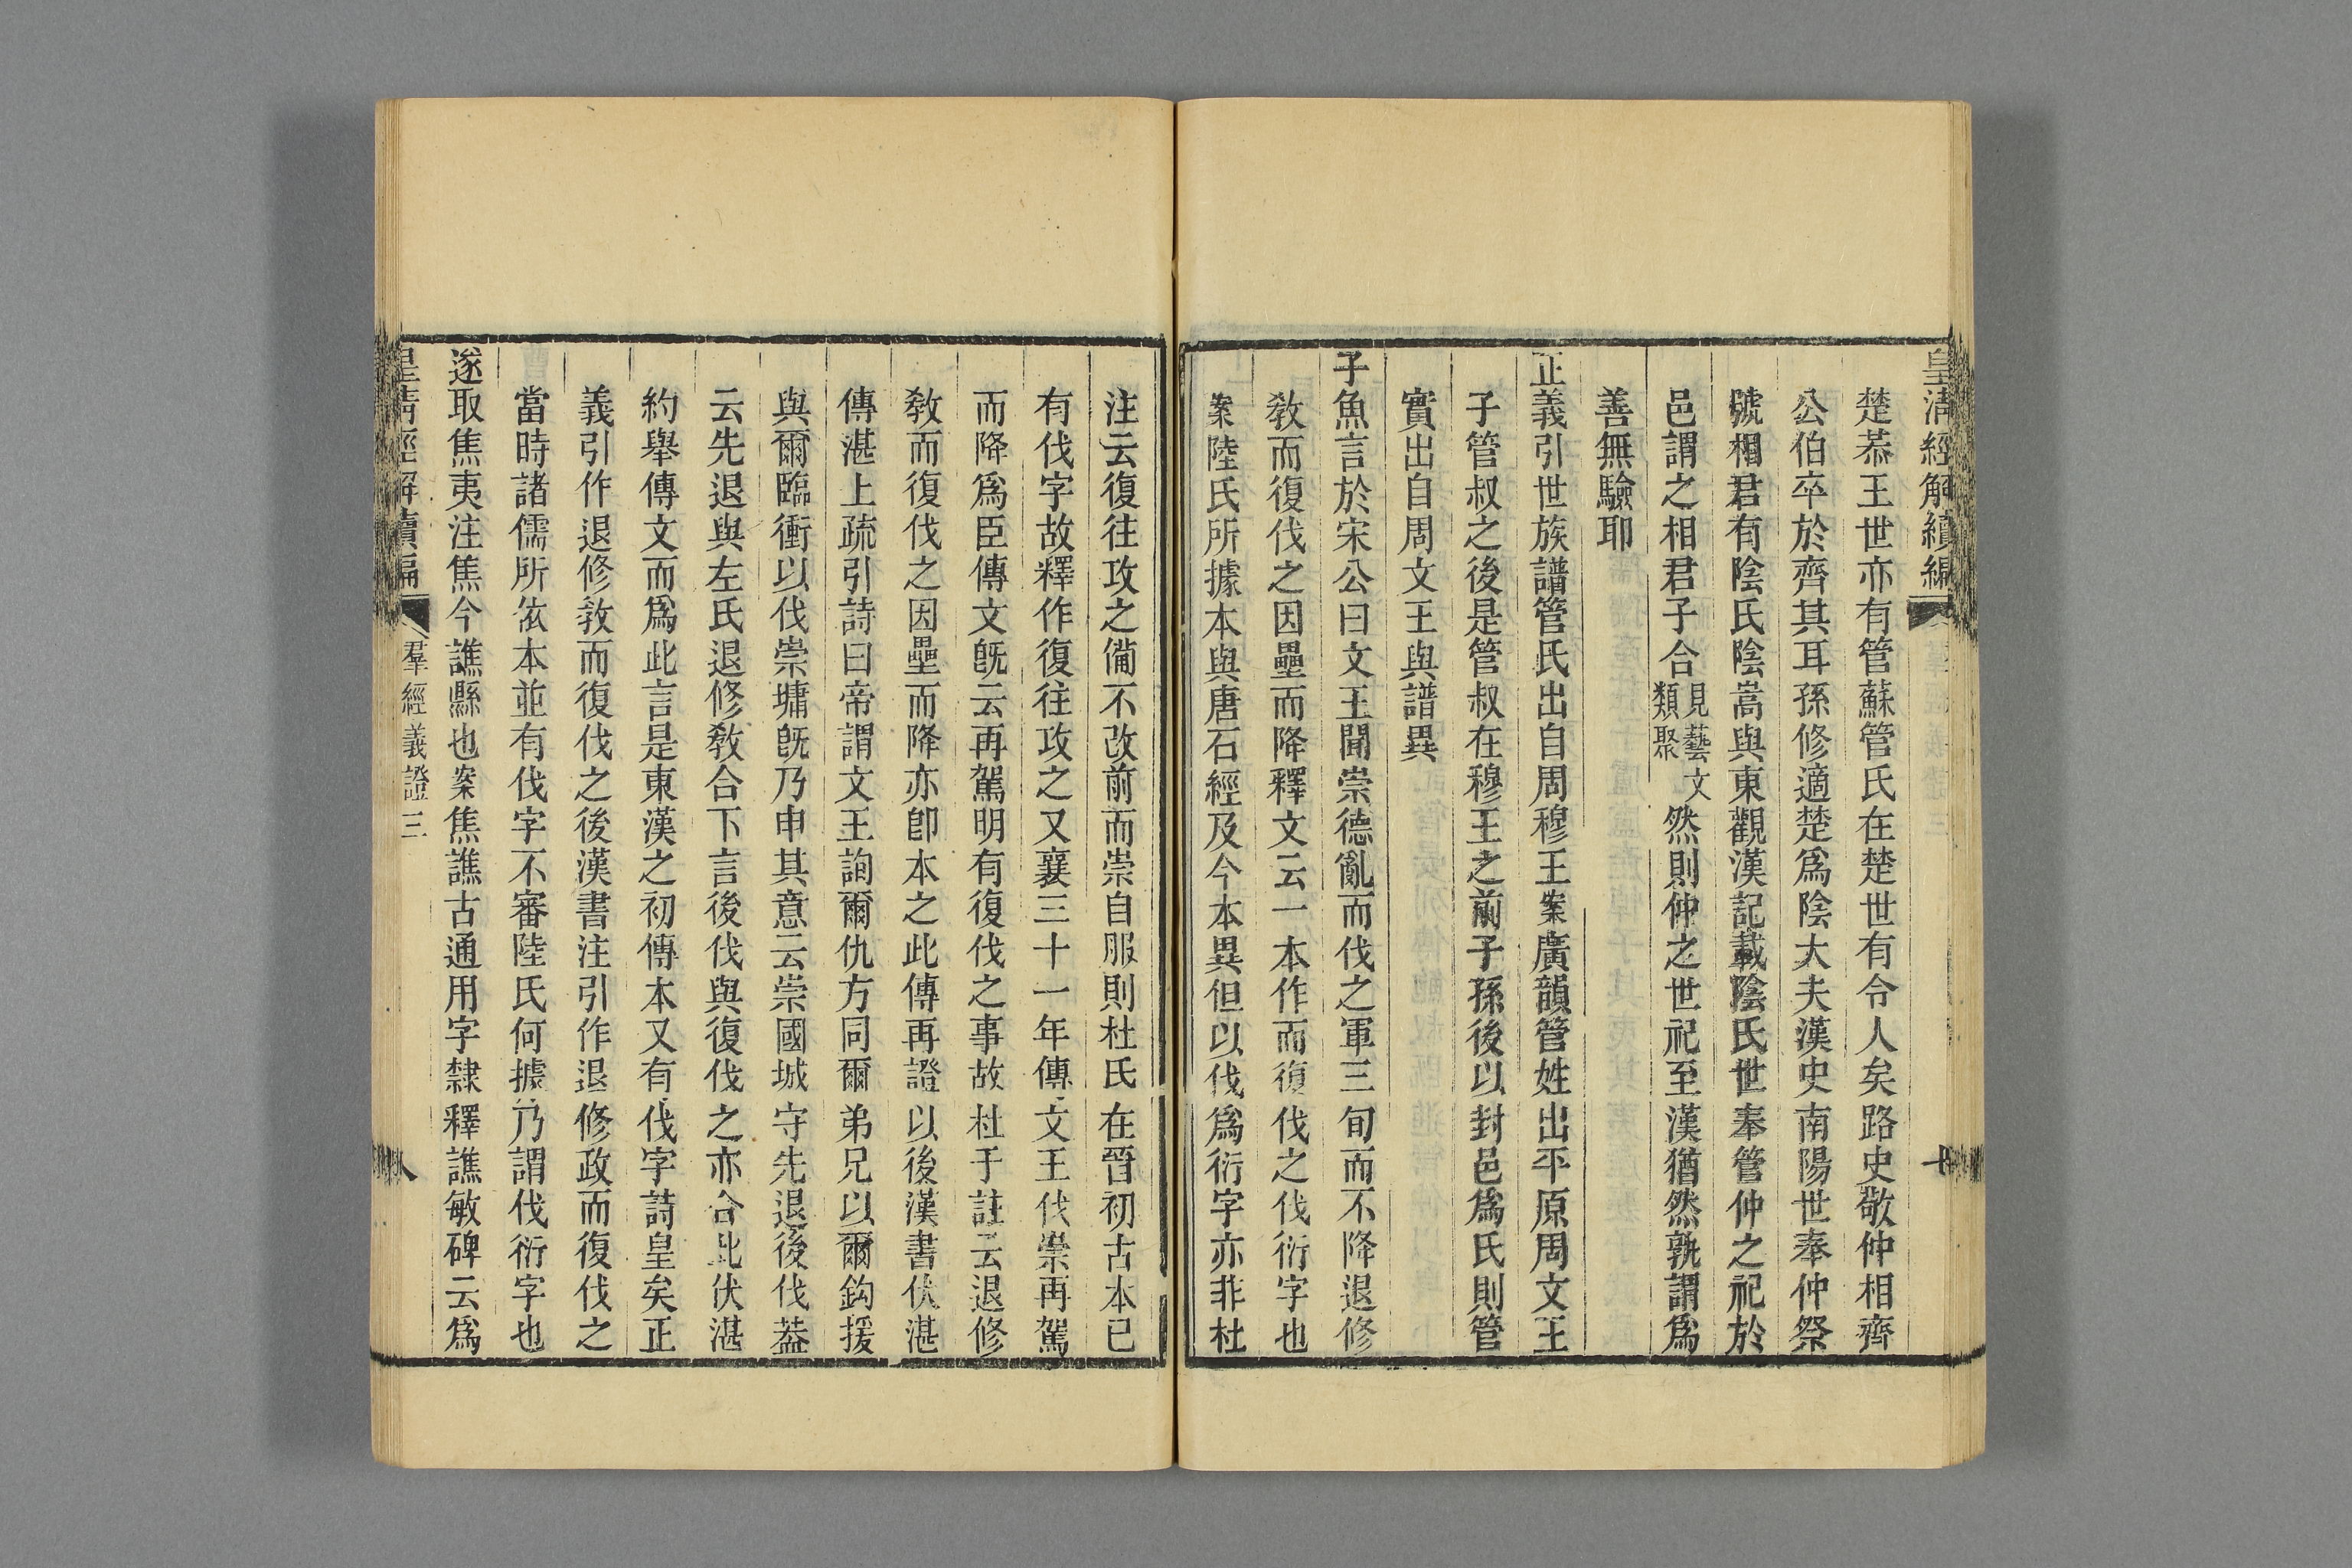 皇清經解續編
楚恭王世亦有管蘇管氏在楚世有令人矣路史敬仲相齊
公伯卒於齊其耳孫修適楚爲陰大夫漢史南陽世奉仲祭
號相君有陰氏陰嵩與東觀漢記載陰氏世奉管仲之祀於
邑謂之相君子合見藝文類聚然則仲之世祀至漢猶然孰謂爲
善無驗耶
正義引世族譜管氏出自周穆王案廣韻管姓出平原周文王
子管叔之後是管叔在穆王之前子孫後以封邑爲氏則管
實出自周文王與譜異
子魚言於宋公曰文王聞崇德亂而伐之軍三旬而不降退修
敎而復伐之因壘而降釋文云一本作而復伐之伐衍字也
案陸氏所據本與唐石經及今本異但以伐爲衍字亦非杜
注云復往攻之備不改前而崇自服則杜氏在晉初古本已
有伐字故釋作復往攻之又襄三十一年傳文王伐崇再駕
而降爲臣傳文旣云再駕明有復伐之事故杜于註云退修
敎而復伐之因壘而降亦卽本之此傳再證以後漢書伏湛
傳湛上疏引詩曰帝謂文王詢爾仇方同爾弟兄以爾鈎援
與爾臨衝以伐崇墉旣乃申其意云崇國城守先退後伐葢
云先退與左氏退修敎合下言後伐與復伐之亦合此伏湛
約舉傳文而爲此言是東漢之初傳本又有伐字詩皇矣正
義引作退修敎而復伐之後漢書注引作退修政而復伐之
當時諸儒所依本並有伐字不審陸氏何據乃謂伐衍字也
遂取焦夷注焦今譙縣也案焦譙古通用字隸釋譙敏碑云爲
皇清經解續編
羣經義證三
八